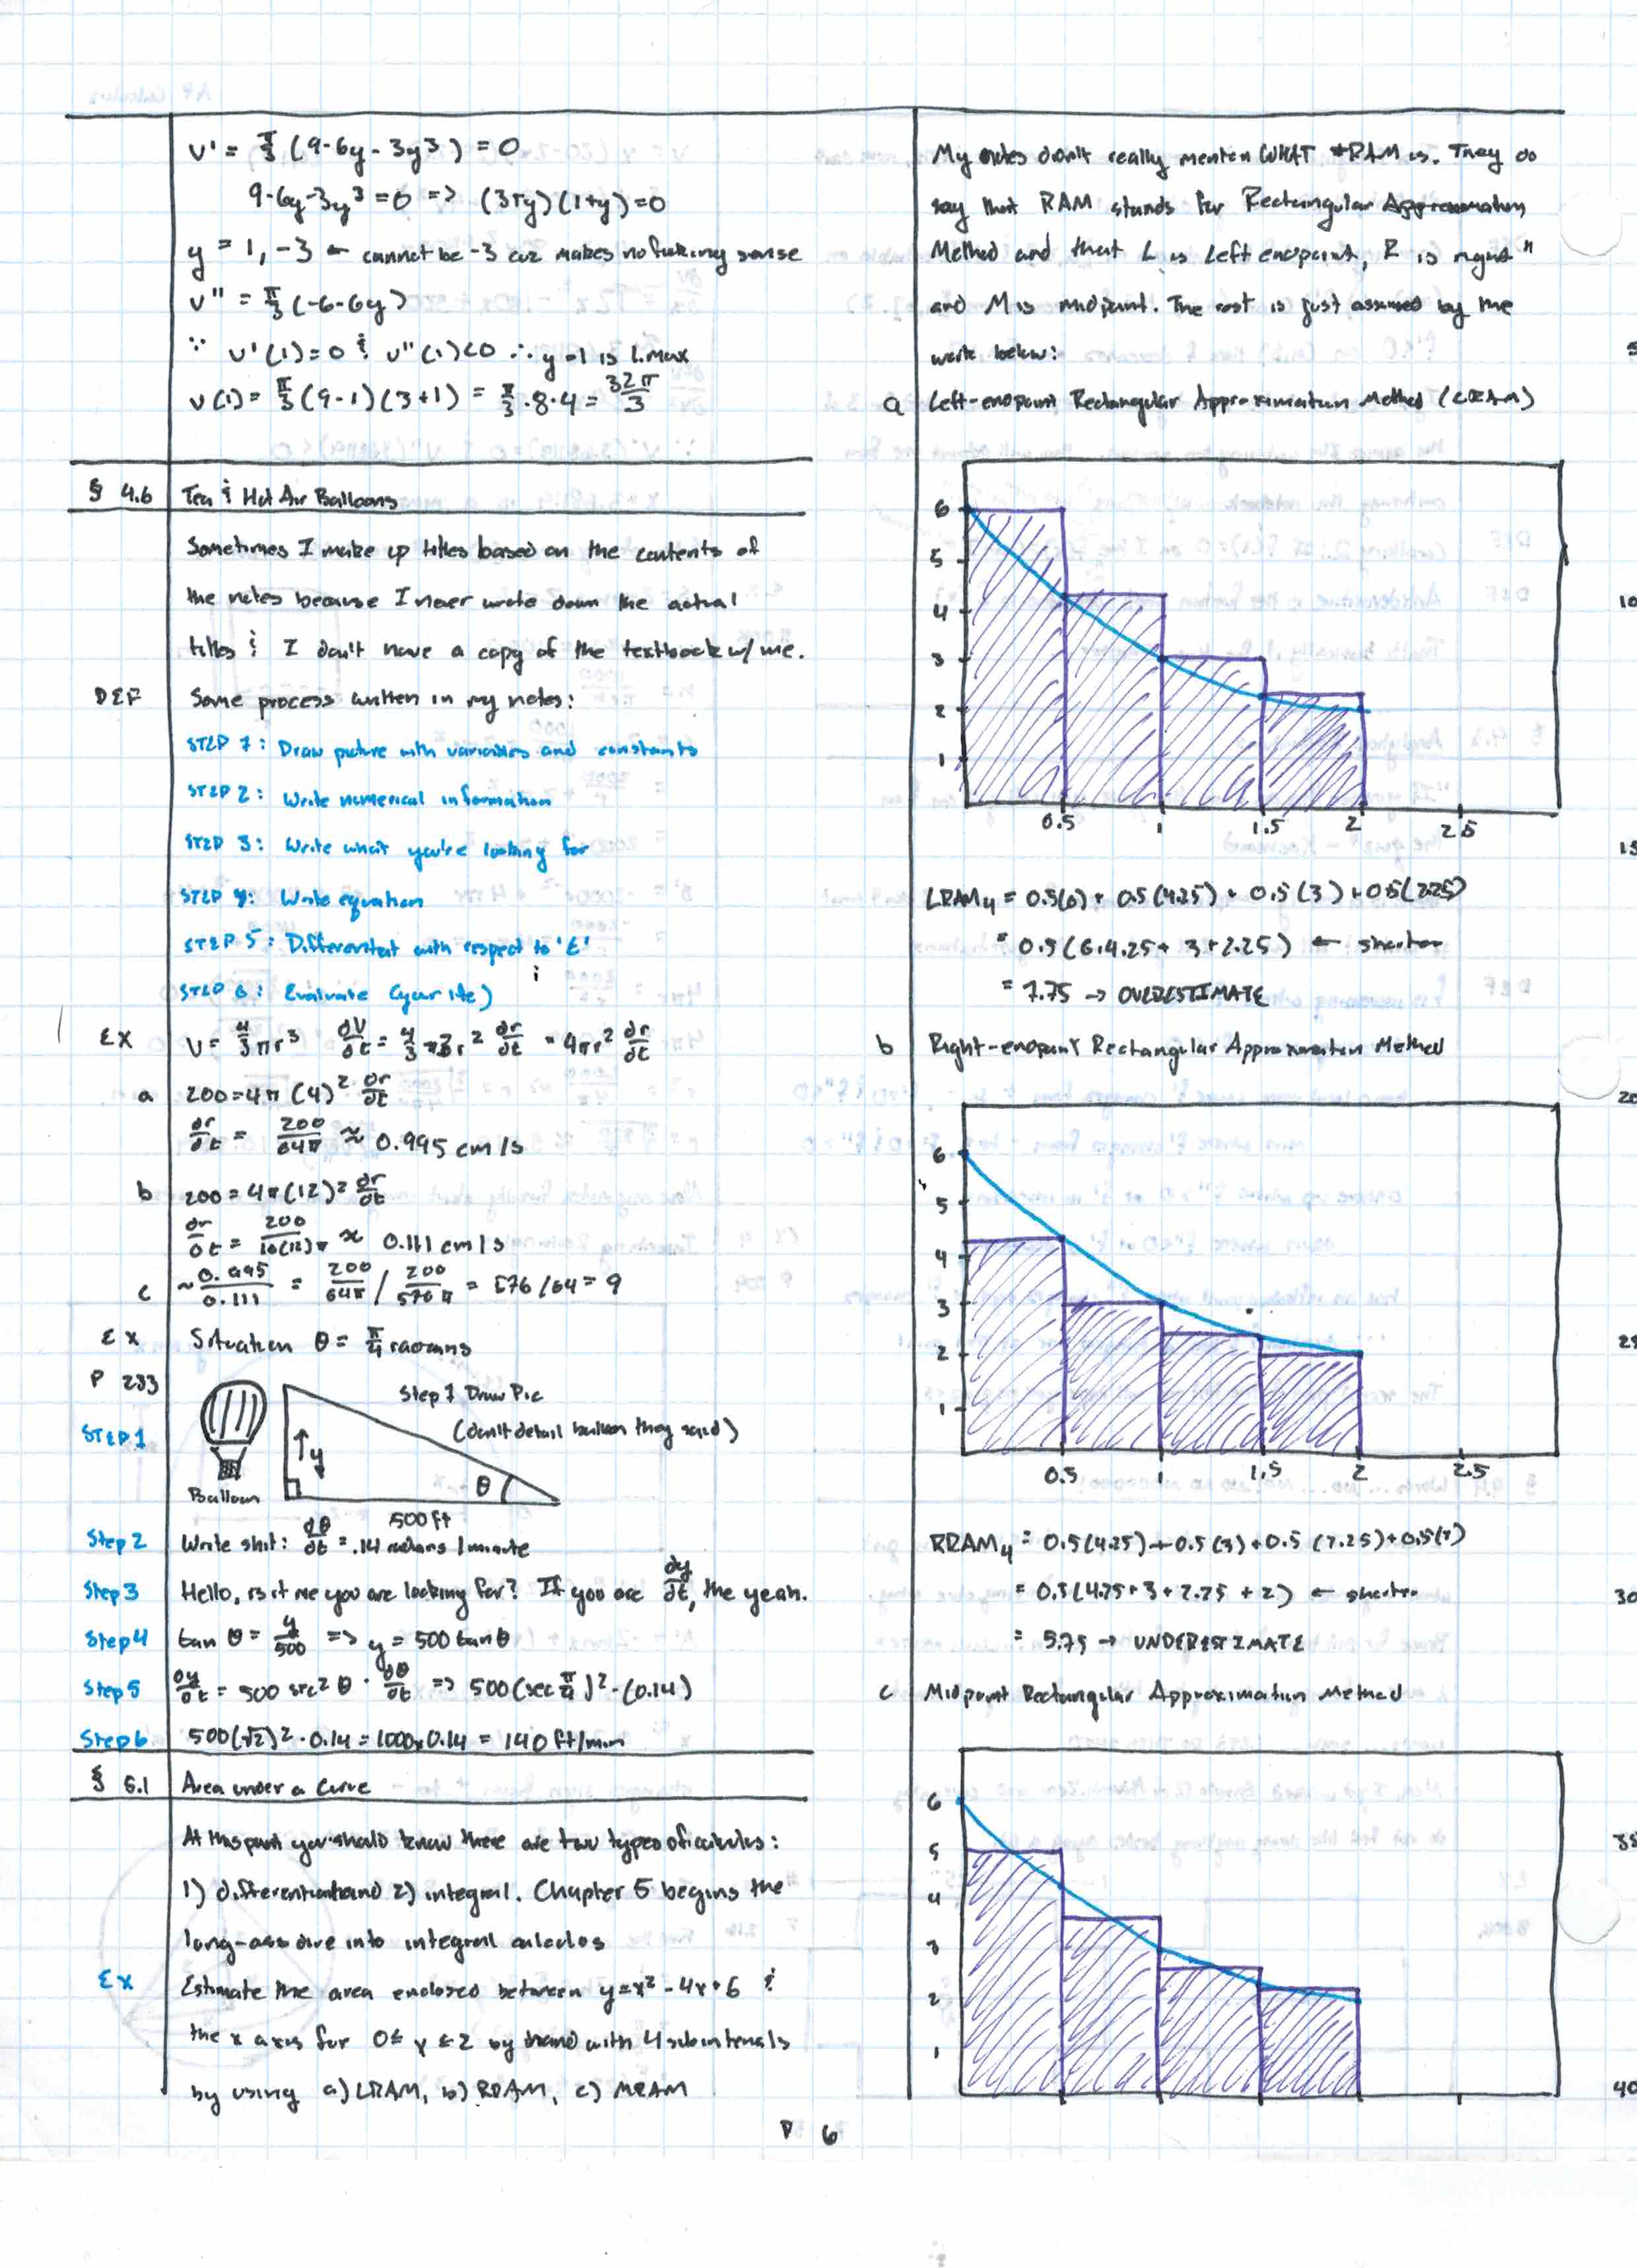 V' = π/3 (9-6y-3y³) = 0
9-6y-3y³ = 0 => (3+y)(1+y)=0
y = 1, -3 ← cannot be -3 cuz makes no fuking sense
V" = π/3 (-6-6y)
∵ V'(1)=0 & V"(1)<0 ∴ y=1 is l.max
V(1) = π/3 (9-1)(3+1) = π/3 · 8 · 4 = 32π/3
§ 4.6 Tea & Hot Air Balloons
Sometimes I make up titles based on the contents of
the notes because I never wrote down the actual
titles & I don't have a copy of the textbook w/ me.
DEF Some process written in my notes:
STEP 1: Draw picture with variables and constants
STEP 2: Write numerical information
STEP 3: Write what you're looking for
STEP 4: Write equation
STEP 5: Differentiat with respect to 't'
STEP 6: Evaluate (your life)
EX V = 4/3 πr³ dV/dt = 4/3 π3r² dr/dt = 4πr² dr/dt
a 200 = 4π(4)² dr/dt
dr/dt = 200/64π ≈ 0.995 cm/s
b 200 = 4π(12)² dr/dt
dr/dt = 200/(12)π ≈ 0.111 cm/s
c ~0.995/0.111 = 200/64π / 200/576π = 576/64 = 9
EX Situation θ = π/4 radians
P 233
STEP 1 Step 1 Draw Pic
(don't detail balloon they said)
y
θ
Balloon
500 ft
Step 2 Write shit: dθ/dt = .14 radians/minute
Step 3 Hello, is it me you are looking for? If you are dy/dt, the yeah.
Step 4 tan θ = y/500 => y = 500 tan θ
Step 5 dy/dt = 500 sec² θ · dθ/dt => 500(sec π/4)² · (0.14)
Step 6 500(√2)² · 0.14 = 1000×0.14 = 140 ft/min
§ 5.1 Area under a Curve
At this point you should know there are two types of calculus:
1) differential and 2) integral. Chapter 5 begins the
long-ass dive into integral calculus
EX Estimate the area enclosed between y=x²-4x+6 &
the x axis for 0≤x≤2 by hand with 4 subintervals
by using a) LRAM, b) RRAM, c) MRAM
My notes don't really mention WHAT *RAM is. They do
say that RAM stands for Rectangular Approximation
Method and that L is Left endpoint, R is right "
and M is midpoint. The rest is just assumed by the
work below:
a Left-endpoint Rectangular Approximation Method (LRAM)
6
5
4
3
2
1
0.5 1 1.5 2 2.5
LRAM₄ = 0.5(6) + 0.5(4.25) + 0.5(3) + 0.5(2.25)
= 0.5(6+4.25+3+2.25) ← shorter
= 7.75 → OVERESTIMATE
b Right-endpoint Rectangular Approximation Method
6
5
4
3
2
1
0.5 1 1.5 2 2.5
RRAM₄ = 0.5(4.25)+0.5(3)+0.5(2.25)+0.5(2)
= 0.5(4.25+3+2.25+2) ← shorter
= 5.75 → UNDERESTIMATE
c Midpoint Rectangular Approximation Method
6
5
4
3
2
1
5
10
15
20
25
30
35
40
P 6